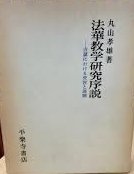 丸山孝雄著
法華教学研究序説
―吉蔵における受容と展開―
平楽寺書店